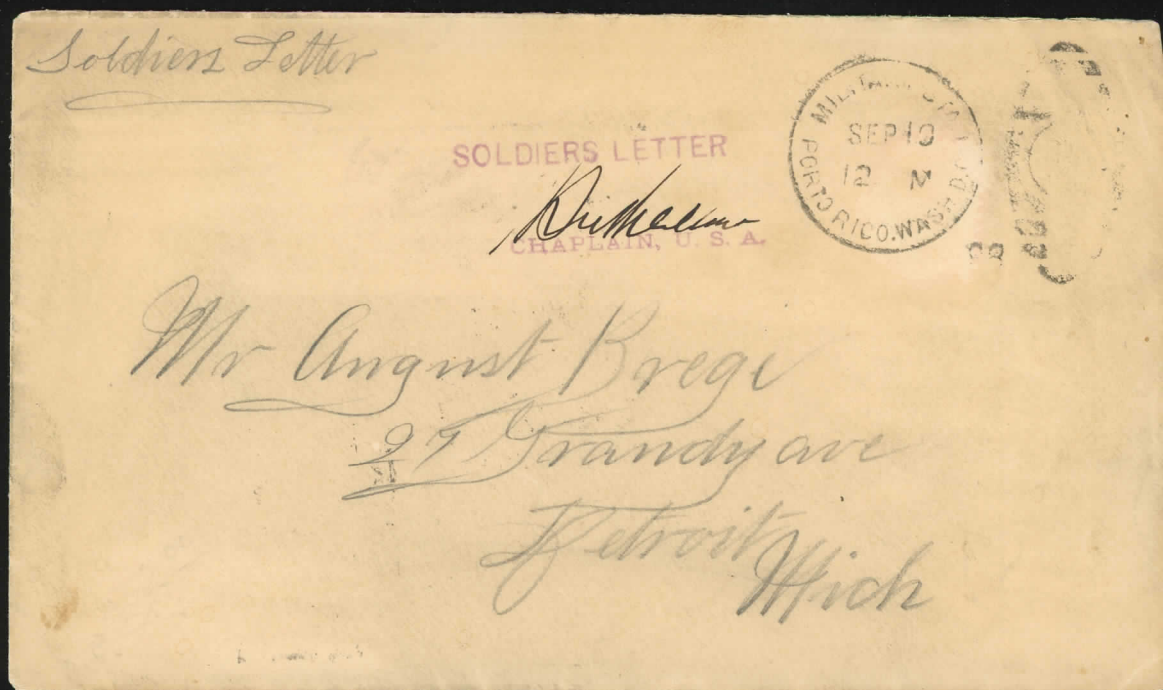 Soldiers Letter
SOLDIERS LETTER
CHAPLAIN, U. S. A.
SEP 19
12 M
PORTO RICO. WASH. D.C.
98
Mr August Brege
27 Grandy ave
Detroit
Mich